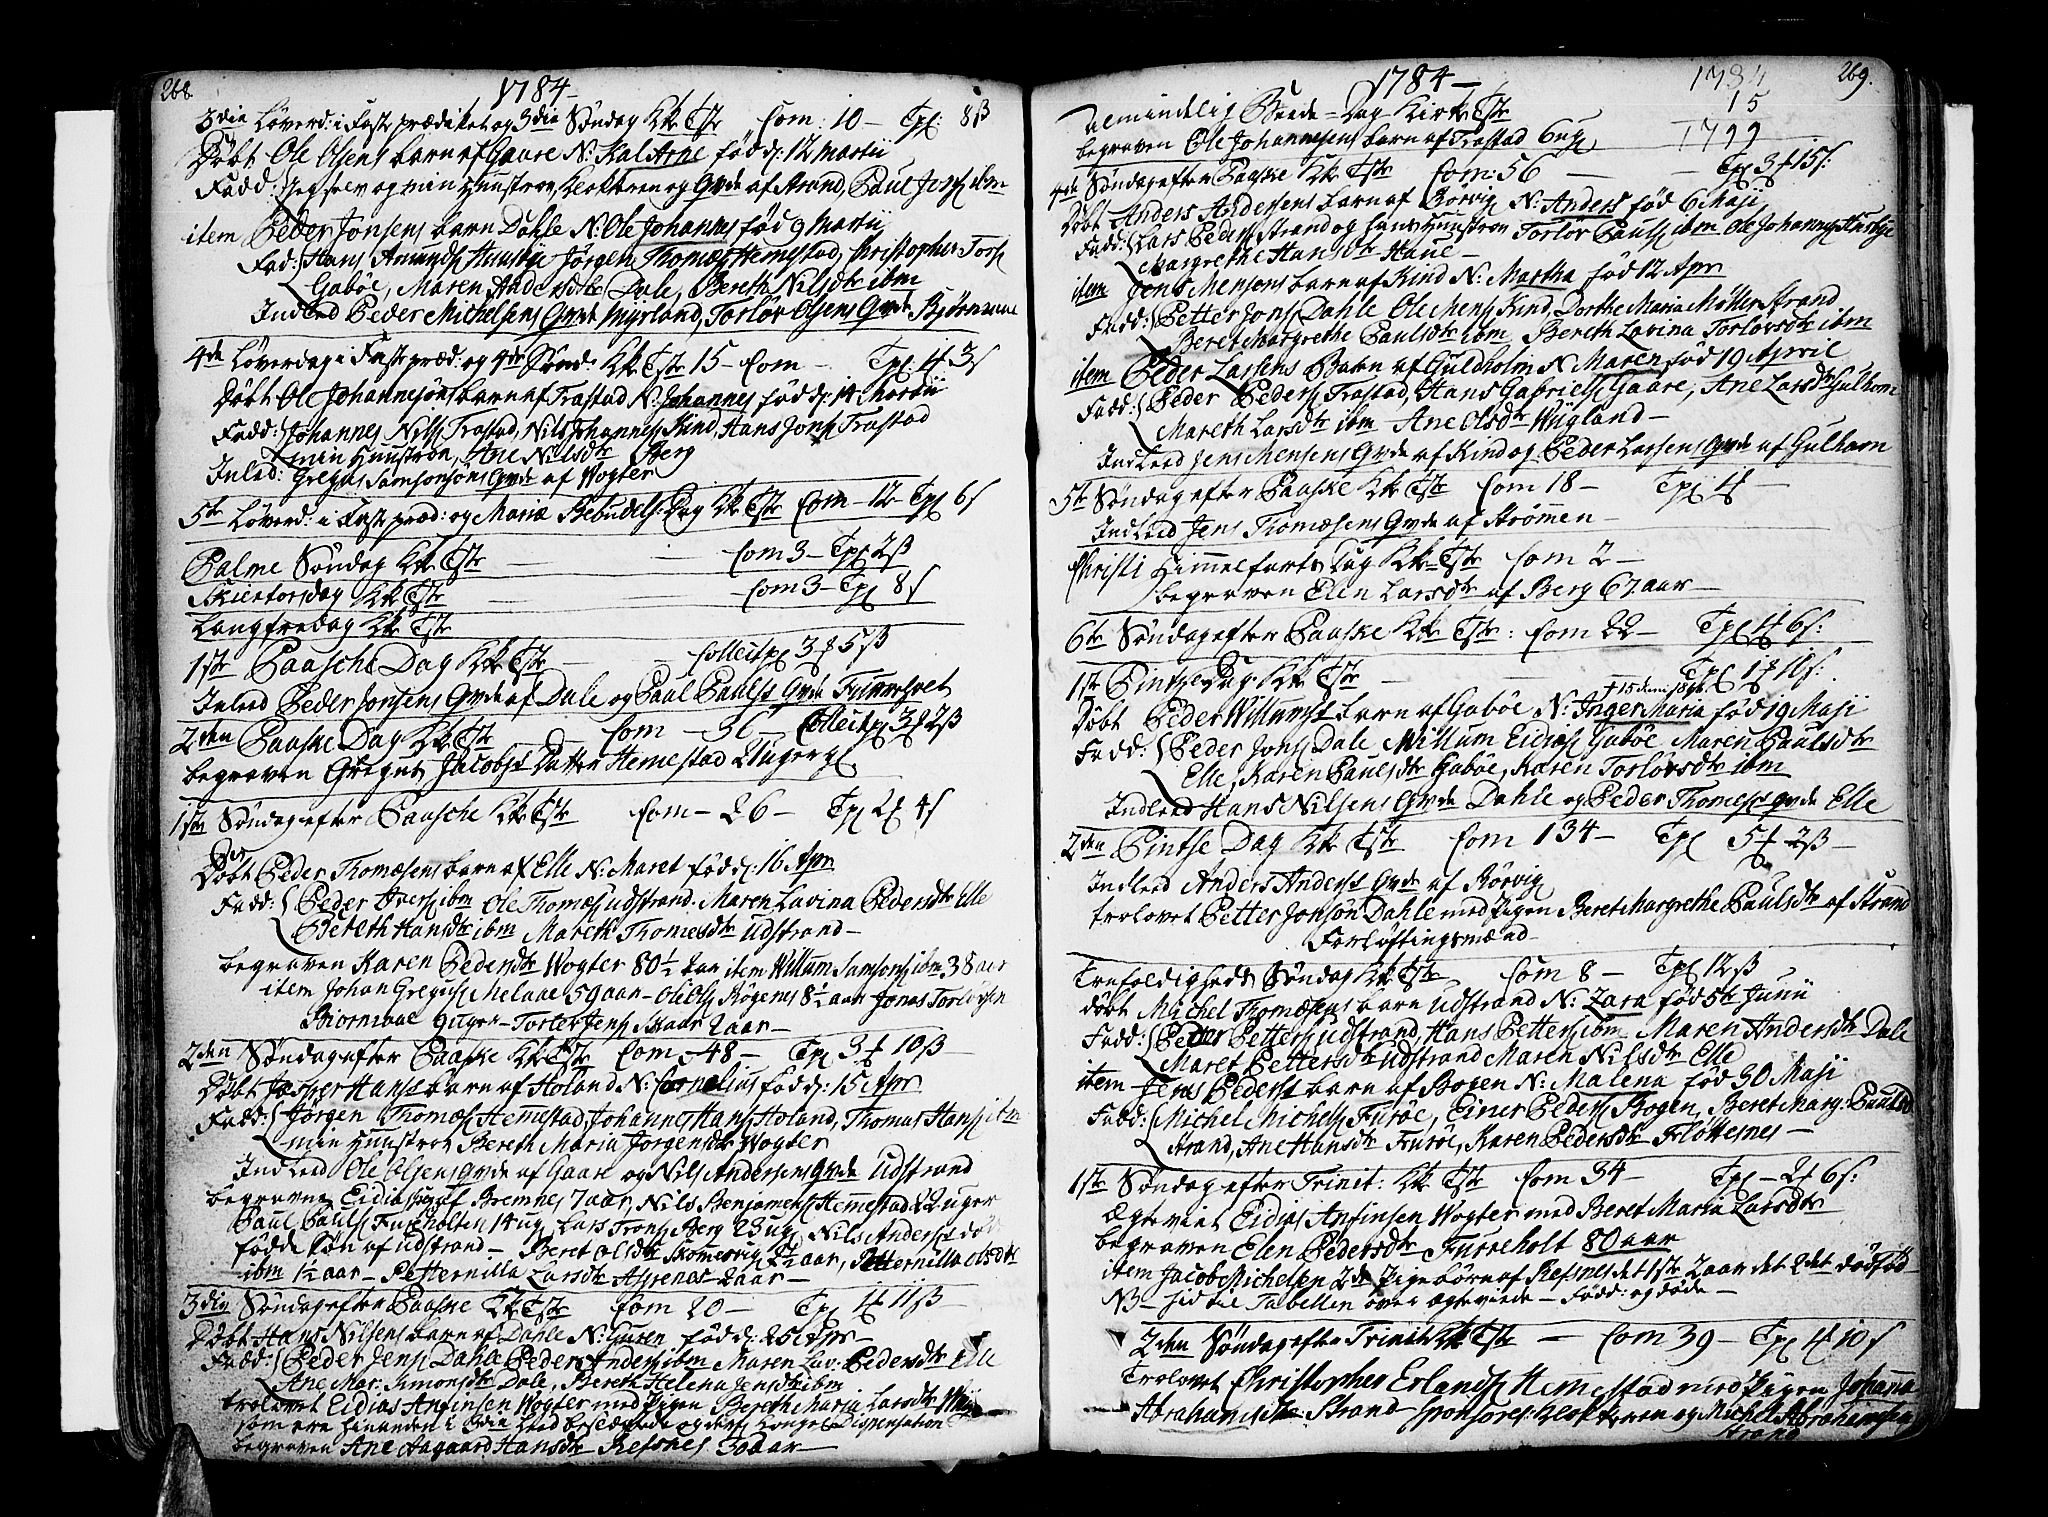 268.
1784 —
3die Løverd: i Faste prædiket og 3die Søndag Kk Tste Com: 10 — Tpl: 8ß
Døbt Ole Olsens barn af Gaare N: Kal Arne fød d: 12 Martii
Fadd: og min Hunstroe, Klokkeren og Gvde af Strand, Paul Jons ibm
item Peder Jonsens barn Dahle N: Ole Johannes fød 9 Martii
Fad: Hans Amunds Huusbye Jørgen Thomæs Hemestad, Christopher Torl
Gaböe, Maren Andersdtr Dale, Bereth Nilsdtr ibm
Indled Peder Michelsens Gvde Myrland, Torløv Olsens Gvde Bjørnevaae
4de Løverdag i Faste præd: og 4de Sönd: Kk Tste 15 — Com — Tpl 1 f 3 s
Døbt Ole Johannesøns barn af Trastad N: Johannes fød d: 14 Martii
Fadd: Johannes Nils Trastad, Nils Johannes Kind, Hans Jons Trastad
min Hunstroe, Ane Nilsdtr Berg
Inled: Gregus Samsonsöns Gvde af Wogter
5te Löverd: i Faste præd: og Mariæ Bebudels: Dag Kk Tste Com — 12 — Tpl 6 s
Palme Söndag Kk Tste — — Com 3 — Tpl 2ß
Skiertorsdag Kk Tste — — Com 3 — Tpl 8 s
Langfredag Kk Tste
1ste Paasche Dag Kk Tste — Collect 3 f 5ß
Inled Peder Jonsens Gvde af Dale og Paul Pauls Gvde
2den Paaske Dag Kk Tste Com — 36 Collect 3 f 2ß
begraven Gregus Jacobs Datter Hemestad 2 Uger
1ste Søndag efter Paasche Kk Tste Com — 26 — Tpl 2 f 4 s
Døbt Peder Thomæsens barn af Elle N: Maret fød d: 16 Apr
Fadd: Peder Ivers ibm Ole Thomæs udstrand. Maren Lavina Pedersdtr Elle
Bereth Hansdtr ibm Mareth Thomesdtr Udstrand —
begraven Karen Pedersdtr Wogter 80½ aar item Willum Samsons ibm 38 aar
item Johan Gregus Melaae 59 aar — Ole Ols Røgenes 8½ aar Jonas Torløvsen
Biornvaae 9 uger — Torler Jens 2 aar —
2den Søndag efter Paaske Kk Tste Com — 48 — Tpl 3 f 10ß
Døbt Jasper Hans barn af Holand N: Cornelius fød d: 15 Apr
Fadd: Jörgen Thomæs Hemestad, Johannes Hans Holand, Thomas Hans ibm
min Hunstroe Bereth Maria Jörgensdtr Wogter
Indled Ole Olsens Gvde af Gaare og Nils Andersens Gvde Udstrand
begraven Eidias Bremnes 7 aar, Nils Benjamens Hemmestad 22 uger
Paul Pauls Furholten 14 ug, Lars Trons Berg 23 ug, Nils Anders död
fødde søn af udstrand — Beret Olsdtr aar, Petternilla Olsdtr
ibm 1½ aar — Petternilla Larsdtr 2 aar —
3die Söndag efter Paaske Kk Tste Com 20 — Tpl 1 f 11ß —
Døbt Hans Nilsens barn af Dahle N: Guren fød d: 25 Apr —
Fadd: Peder Jens Dahle Peder Anders ibm Maren Lav: Pedersdtr Elle
Ane Mar: Simonsdtr Dale, Bereth Helena Jensdtr ibm
trolovet Eidias Anfinsen Wogter med Pigen Bereth Maria Larsdtr
som ere hinanden i 3die Leed beslægtede og derpaa Konge: Dispensation
begraven Ane Aagaard Hansdtr Refsnes 30 aar —
269.
1784 —
1784
15
1799
Almindelig Beede-Dag Kirk Tste
begraven Ole Johannesens barn af Trastad 6 ug
4de Söndag efter Paaske Kk Tste Com: 56 — — Tpl 3 f 15 s:
Døbt Anders Andersens barn af Rörvig N: Anders fød 6 Maji
Fadd: Lars Peders Strand og hans Hunstroe Torlöv Pauls ibm Ole Johannes Husbye
Margrethe Hansdtr Haue —
item Jens Mensens barn af Kind N: Martha fød 12 Apr
Fadd: Petter Jons Dahle Ole Mens Kind, Dorthe Maria Möller Strand
Beret Margrethe Paulsdtr ibm Bereth Lavina Torlovsdtr ibm
item Peder Larsens Barn af Guldholm N: Maren fød 19 April
Fadd: Peder Peders Trastad, Hans Gabriels Gaare, Ane Larsdtr Gulhom
Mareth Larsdtr ibm Ane Olsdtr Wygland —
Indleed Jens Mensens Gvde af Kind og Peder Larsens Gvde af Gulhom
5te Söndag efter Paaske Kk Tste Com 18 — Tpl 1 f —
Indleed Jens Thomæsens Gvde af Strömmen —
Christi Himmelfarts Dag Kk Tste Com 2 —
begraven Elen Larsdtr af Berg 67 aar —
6te Söndag efter Paaske Kk Tste: Com 22 — Tpl 1 f 6 s:
1ste Pintse Dag Kk Tste — Tpl 1 f 10 s:
† 15 Juni
Døbt Peder Willums barn af Gaböe N: Inger Maria fød 19 Maji
Fadd: Peder Jons Dale, Willum Eidias Gaböe Maren Paulsdtr
Elle, Karen Paulsdtr Gaböe, Karen Torlövsdtr ibm
Indleed Hans Nilsens Gvde Dahle og Peder Thomes gvde Elle
2den Pintse Dag Kk Tste Com 134 — Tpl 5 f 2ß —
Indleed Anders Anders Gvde af Rörvig
trolovet Petter Jonsön Dahle med Pigen Beret Margrethe Paulsdtr af Strand
Forløftingsmænd —
Trefoldigheds Söndag Kk Tste Com 8 — Tpl 12ß
Döbt Michel Thomæsens barn Udstrand N: Zara fød 5te Junii
Fadd: Peder Petters udstrand, Hans Petters ibm Maren Andersdtr Dale
Maret Pettersdtr Udstrand Maren Nilsdtr Elle
item — Jens Peders barn af Bogen N: Malena fød 30 Maji
Fadd: Michel Michels Furöe, Einer Peders Bogen, Beret Marg: Paulsd
Strand, Ane Hansdtr Furöe, Karen Pedersdtr Flöttesnes —
1ste Söndag efter Trinit: Kk Tste Com 34 — Tpl — 2 f 6 s:
Ægteviet Eidias Anfinsen Wogter med Beret Maria Larsdtr
begraven Elen Pedersdtr Furreholt 80 aar
item Jacob Michelsen 2de Pige börn af Refsnes det 1ste 2 aar det 2det dödfød
NB — hid til Tabellen over Ægteviede — Fødd: og døde —
2den Söndag efter Trinit Kk Tste — Com 39 — Tpl 1 f 10 s
Trolovet Christopher Erlands Hemestad med Pigen Johanna
Abrahamsdtr: Strand Sponsores: Klokkeren og Michel Abrahamsen
Strand